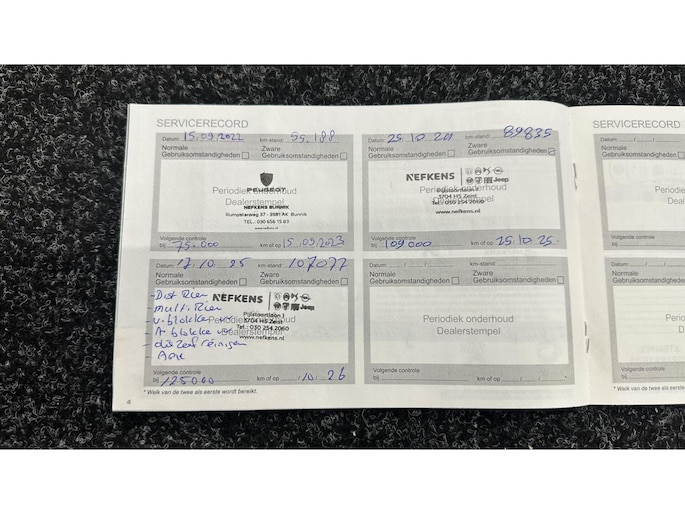 SERVICERECORD
Datum: 15.09.2022 km-stand: 55.188
Normale Gebruiksomstandigheden
Zware Gebruiksomstandigheden
Periodiek onderhoud
Dealerstempel
PEUGEOT
NEFKENS BUNNIK
Rumpsterweg 37 - 3981 AK Bunnik
TEL.: 030 656 15 83
www.nefkens.nl
Volgende controle
bij 75.000 km of op 15.09.2023
Datum: 25.10.20 km-stand: 89835
Normale Gebruiksomstandigheden
Zware Gebruiksomstandigheden
Periodiek onderhoud
Dealerstempel
NEFKENS Jeep
3704 HS Zeist
Tel.: 030 254 2060
www.nefkens.nl
Volgende controle
bij 109000 km of op 25.10.25.
Datum: 17.10.25 km-stand: 107077
Normale Gebruiksomstandigheden
Zware Gebruiksomstandigheden
- Dist Riem
- multi Riem
- v. blokken
- A blokken
- reinigen
NEFKENS
3704 HS Zeist
Tel.: 030 254 2060
www.nefkens.nl
Dealerstempel
Volgende controle
bij 125000 km of op 10.26
Datum: km-stand:
Normale Gebruiksomstandigheden
Zware Gebruiksomstandigheden
Periodiek onderhoud
Dealerstempel
Volgende controle
bij km of op
* Welk van de twee als eerste wordt bereikt.
4
SERVICERECORD
Datum:
Normale
Gebruiksomstandigheden
Volgende controle
bij
Datum:
Normale
Gebruiksomstandigheden
Volgende controle
bij
* Welk van de twee als